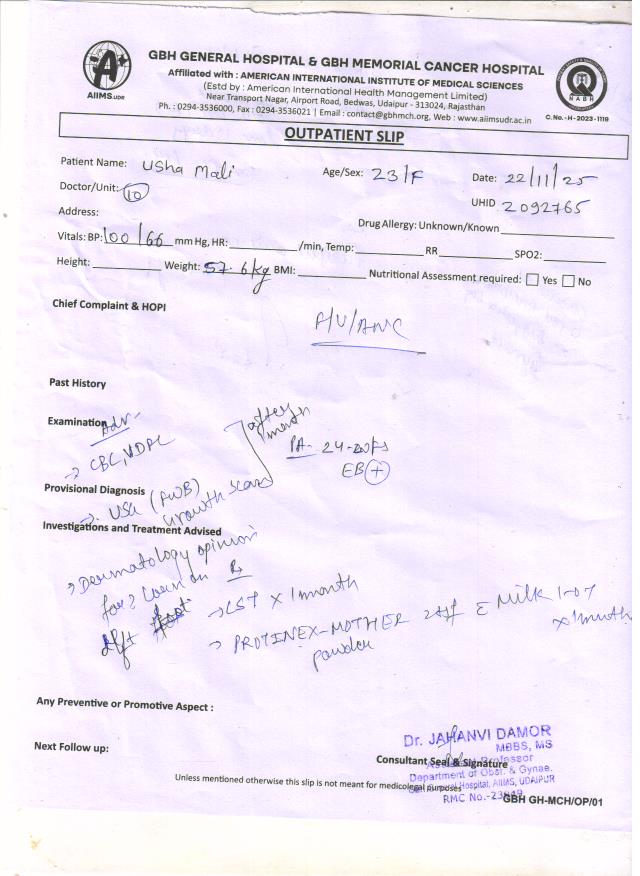 GBH GENERAL HOSPITAL & GBH MEMORIAL CANCER HOSPITAL
Affiliated with : AMERICAN INTERNATIONAL INSTITUTE OF MEDICAL SCIENCES
(Estd by : American International Health Management Limited)
Near Transport Nagar, Airport Road, Bedwas, Udaipur - 313024, Rajasthan
Ph. : 0294-3536000, Fax : 0294-3536021 | Email : contact@gbhmch.org, Web : www.aiimsudr.ac.in
AIIMS.UDR
NABH
C. No. - H - 2023 - 1119
OUTPATIENT SLIP
Patient Name: Usha Mali Age/Sex: 23/F Date: 22/11/25
Doctor/Unit: 10 UHID 2092765
Address:
Drug Allergy: Unknown/Known
Vitals: BP: 100/66 mm Hg, HR: /min, Temp: RR SPO2:
Height: Weight: 57.6 kg BMI: Nutritional Assessment required: Yes No
Chief Complaint & HOPI
F/U/ANC
Past History
Examination
Adv-
after 1 month
→ CBC, VDRL
PA- 24-26
EB +
Provisional Diagnosis
→ USG (FWB)
Growth scan
Investigations and Treatment Advised
→ Dermatology opinion
for ? Corn on
left foot
Rx
→ CST x 1 month
→ PROTINEX-MOTHER 2tsf c Milk 1-OD
powder x 1 month
Any Preventive or Promotive Aspect :
Next Follow up:
Dr. JAHANVI DAMOR
MBBS, MS
Consultant Seal & Signature
Assistant Professor
Department of Obst. & Gynae.
GBH General Hospital, AIIMS, UDAIPUR
RMC No.-
Unless mentioned otherwise this slip is not meant for medicolegal purposes
GBH GH-MCH/OP/01